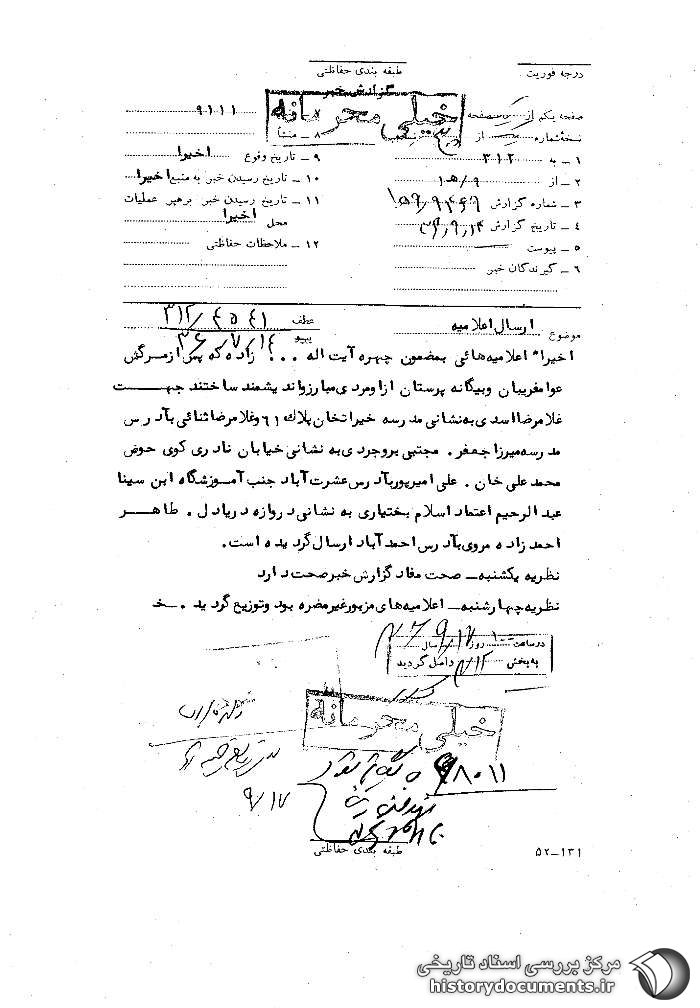 درجه فوریت
طبقه بندی حفاظتی
گزارش خبر
خیلی محرمانه
صفحه یکم از یک صفحه
نسخه شماره از نسخه
۱ ـ به ۳۱۲
۲ ـ از ۹/ه۱
۳ ـ شماره گزارش
۴ ـ تاریخ گزارش
۵ ـ پیوست
۶ ـ گیرندگان خبر
۷ ۹۱۱۱
۸ ـ منشأ
۹ ـ تاریخ وقوع اخیرا
۱۰ ـ تاریخ رسیدن خبر به منبع اخیرا
۱۱ ـ تاریخ رسیدن خبر برهبر عملیات
محل اخیرا
۱۲ ـ ملاحظات حفاظتی
موضوع ارسال اعلامیه
عطف
پیرو
اخیرا" اعلامیه هائی بمضمون چهره آیت اله ... زاده که پس از مرگش
عوامفریبان و بیگانه پرستان از او مردی مبارز و اندیشمند ساختند جهت
غلامرضا اسدی به نشانی مدرسه خیراتخان پلاك ۶۱ و غلامرضا ثنائی بآدرس
مدرسه میرزا جعفر . مجتبی بروجردی به نشانی خیابان نادری کوی حوض
محمد علی خان . علی امیرپور بآدرس عشرت آباد جنب آموزشگاه ابن سینا
عبدالرحیم اعتماد اسلام بختیاری به نشانی دروازه دریادل . طاهر
احمدزاده مروی بآدرس احمدآباد ارسال گردیده است.
نظریه یکشنبه ـ صحت مفاد گزارش خبر صحت دارد
نظریه چهارشنبه ـ اعلامیه های مزبور غیر مضره بود و توزیع گردید . خ
در ساعت ۱۰ روز سال
به بخش ۳۱۲ داخل گردید
خیلی محرمانه
۹/۱۷
۹۸۰۱۱
طبقه بندی حفاظتی
۵۲ـ۱۳۱
مرکز بررسی اسناد تاریخی
historydocuments.ir